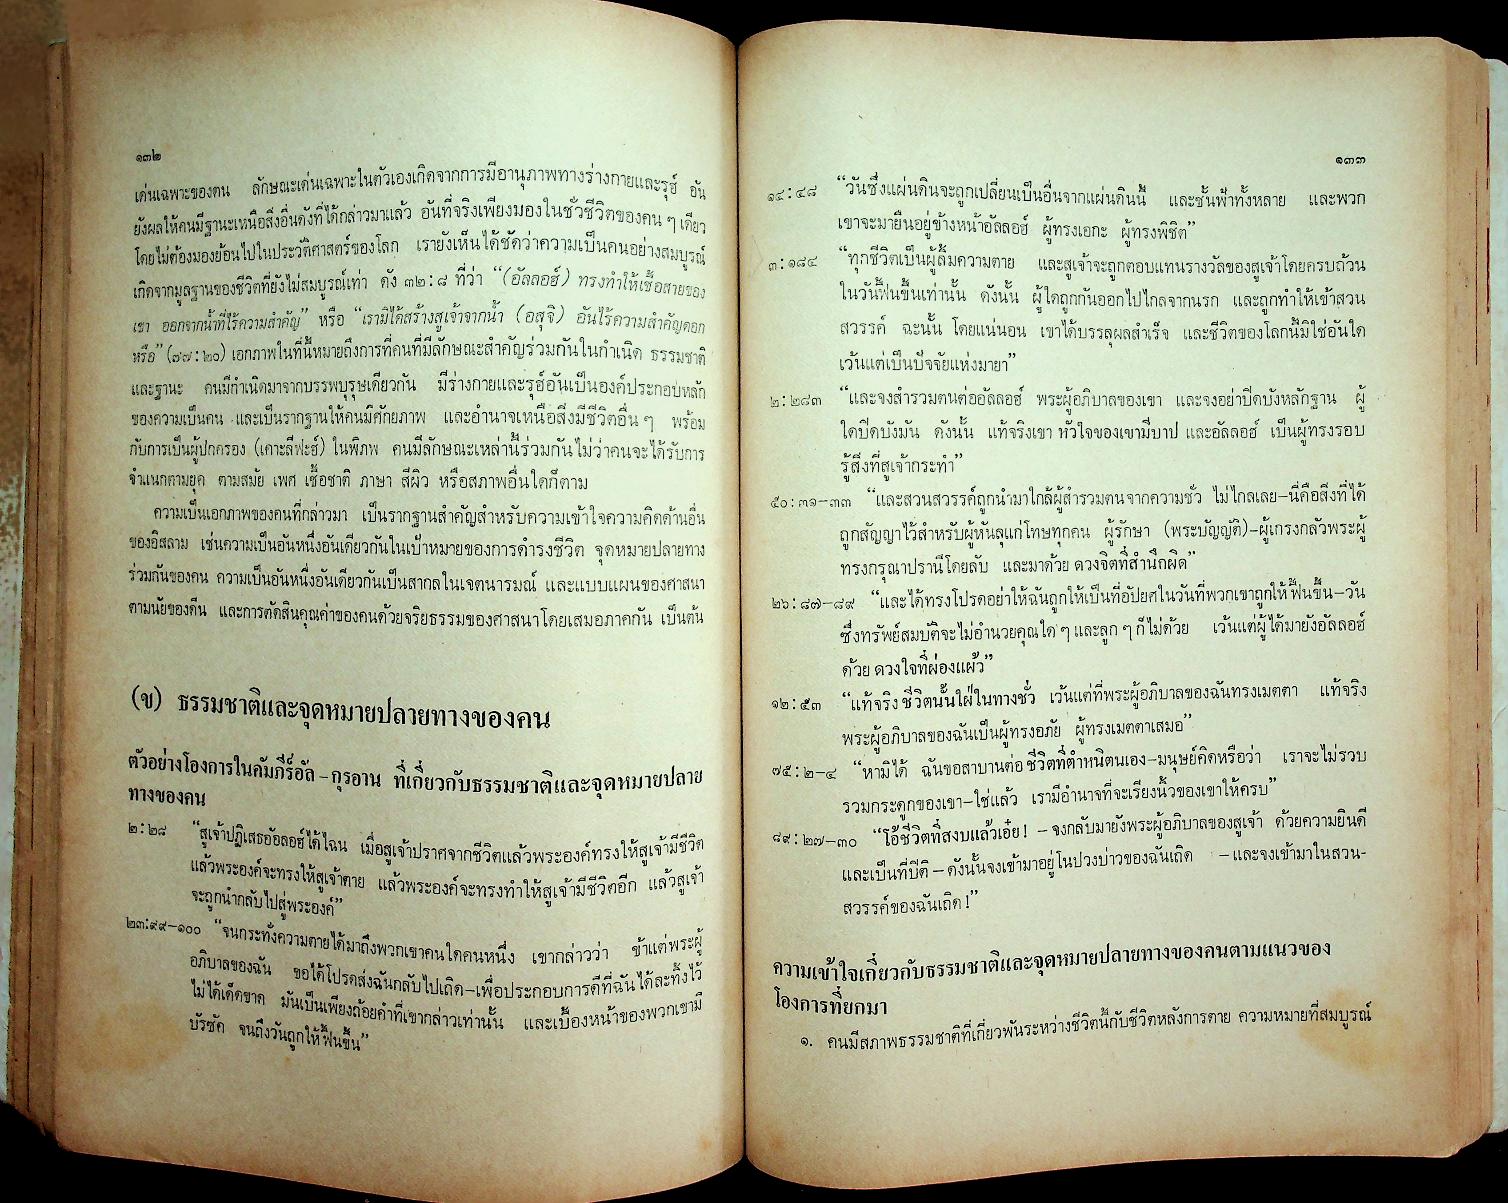 ๑๓๒
เด่นเฉพาะของตน ลักษณะเด่นเฉพาะในตัวเองเกิดจากการมีอานุภาพทางร่างกายและรุฮ์ อัน
ยังผลให้คนมีฐานะเหนือสิ่งอื่นดังที่ได้กล่าวมาแล้ว อันที่จริงเพียงมองในชั่วชีวิตของคน ๆ เดียว
โดยไม่ต้องมองย้อนไปในประวัติศาสตร์ของโลก เรายังเห็นได้ชัดว่าความเป็นคนอย่างสมบูรณ์
เกิดจากมูลฐานของชีวิตที่ยังไม่สมบูรณ์เท่า ดัง ๓๒:๘ ที่ว่า “(อัลลอฮ์) ทรงทำให้เชื้อสายของ
เขา ออกจากน้ำที่ไร้ความสำคัญ” หรือ “เรามิได้สร้างสูเจ้าจากน้ำ (อสุจิ) อันไร้ความสำคัญดอก
หรือ” (๗๗:๒๐) เอกภาพในที่นี้หมายถึงการที่คนที่มีลักษณะสำคัญร่วมกันในกำเนิด ธรรมชาติ
และฐานะ คนมีกำเนิดมาจากบรรพบุรุษเดียวกัน มีร่างกายและรุฮ์อันเป็นองค์ประกอบหลัก
ของความเป็นคน และเป็นรากฐานให้คนมีศักยภาพ และอำนาจเหนือสิ่งมีชีวิตอื่น ๆ พร้อม
กับการเป็นผู้ปกครอง (เคาะลีฟะฮ์) ในพิภพ คนมีลักษณะเหล่านี้ร่วมกันไม่ว่าคนจะได้รับการ
จำแนกตามยุค ตามสมัย เพศ เชื้อชาติ ภาษา สีผิว หรือสภาพอื่นใดก็ตาม
ความเป็นเอกภาพของคนที่กล่าวมา เป็นรากฐานสำคัญสำหรับความเข้าใจความคิดด้านอื่น
ของอิสลาม เช่นความเป็นอันหนึ่งอันเดียวกันในเป้าหมายของการดำรงชีวิต จุดหมายปลายทาง
ร่วมกันของคน ความเป็นอันหนึ่งอันเดียวกันเป็นสากลในเจตนารมณ์ และแบบแผนของศาสนา
ตามนัยของดีน และการตัดสินคุณค่าของคนด้วยจริยธรรมของศาสนาโดยเสมอภาคกัน เป็นต้น
(ข) ธรรมชาติและจุดหมายปลายทางของคน
ตัวอย่างโองการในคัมภีร์อัล-กุรอาน ที่เกี่ยวกับธรรมชาติและจุดหมายปลาย
ทางของคน
๒:๒๘ “สูเจ้าปฏิเสธอัลลอฮ์ได้ไฉน เมื่อสูเจ้าปราศจากชีวิตแล้วพระองค์ทรงให้สูเจ้ามีชีวิต
แล้วพระองค์จะทรงให้สูเจ้าตาย แล้วพระองค์จะทรงทำให้สูเจ้ามีชีวิตอีก แล้วสูเจ้า
จะถูกนำกลับไปสู่พระองค์”
๒๓:๙๙–๑๐๐ “จนกระทั่งความตายได้มาถึงพวกเขาคนใดคนหนึ่ง เขากล่าวว่า ข้าแต่พระผู้
อภิบาลของฉัน ขอได้โปรดส่งฉันกลับไปเถิด–เพื่อประกอบการดีที่ฉันได้ละทิ้งไว้
ไม่ได้เด็ดขาด มันเป็นเพียงถ้อยคำที่เขากล่าวเท่านั้น และเบื้องหน้าของพวกเขามี
บัรซัค จนถึงวันถูกให้ฟื้นขึ้น”
๑๓๓
๑๔:๔๘ “วันซึ่งแผ่นดินจะถูกเปลี่ยนเป็นอื่นจากแผ่นดินนี้ และชั้นฟ้าทั้งหลาย และพวก
เขาจะมายืนอยู่ข้างหน้าอัลลอฮ์ ผู้ทรงเอกะ ผู้ทรงพิชิต”
๓:๑๘๔ “ทุกชีวิตเป็นผู้ลิ้มความตาย และสูเจ้าจะถูกตอบแทนรางวัลของสูเจ้าโดยครบถ้วน
ในวันฟื้นขึ้นเท่านั้น ดังนั้น ผู้ใดถูกกันออกไปไกลจากนรก และถูกทำให้เข้าสวน
สวรรค์ ฉะนั้น โดยแน่นอน เขาได้บรรลุผลสำเร็จ และชีวิตของโลกนี้มิใช่อันใด
เว้นแต่เป็นปัจจัยแห่งมายา”
๒:๒๘๓ “และจงสำรวมตนต่ออัลลอฮ์ พระผู้อภิบาลของเขา และจงอย่าปิดบังหลักฐาน ผู้
ใดปิดบังมัน ดังนั้น แท้จริงเขา หัวใจของเขามีบาป และอัลลอฮ์ เป็นผู้ทรงรอบ
รู้สิ่งที่สูเจ้ากระทำ”
๕๐:๓๑–๓๓ “และสวนสวรรค์ถูกนำมาใกล้ผู้สำรวมตนจากความชั่ว ไม่ไกลเลย–นี่คือสิ่งที่ได้
ถูกสัญญาไว้สำหรับผู้หันลุแก่โทษทุกคน ผู้รักษา (พระบัญญัติ)–ผู้เกรงกลัวพระผู้
ทรงกรุณาปรานีโดยลับ และมาด้วย ดวงจิตที่สำนึกผิด”
๒๖:๘๗–๘๙ “และได้ทรงโปรดอย่าให้ฉันถูกให้เป็นที่อัปยศในวันที่พวกเขาถูกให้ฟื้นขึ้น–วัน
ซึ่งทรัพย์สมบัติจะไม่อำนวยคุณใด ๆ และลูก ๆ ก็ไม่ด้วย เว้นแต่ผู้ได้มายังอัลลอฮ์
ด้วย ดวงใจที่ผ่องแผ้ว”
๑๒:๕๓ “แท้จริง ชีวิตนั้นใฝ่ในทางชั่ว เว้นแต่ที่พระผู้อภิบาลของฉันทรงเมตตา แท้จริง
พระผู้อภิบาลของฉันเป็นผู้ทรงอภัย ผู้ทรงเมตตาเสมอ”
๗๕:๒–๔ “หามิได้ ฉันขอสาบานต่อ ชีวิตที่ตำหนิตนเอง–มนุษย์คิดหรือว่า เราจะไม่รวบ
รวมกระดูกของเขา–ใช่แล้ว เรามีอำนาจที่จะเรียงนิ้วของเขาให้ครบ”
๘๙:๒๗–๓๐ “โอ้ชีวิตที่สงบแล้วเอ๋ย! –จงกลับมายังพระผู้อภิบาลของสูเจ้า ด้วยความยินดี
และเป็นที่ปีติ–ดังนั้นจงเข้ามาอยู่ในปวงบ่าวของฉันเถิด –และจงเข้ามาในสวน-
สวรรค์ของฉันเถิด!”
ความเข้าใจเกี่ยวกับธรรมชาติและจุดหมายปลายทางของคนตามแนวของ
โองการที่ยกมา
๑. คนมีสภาพธรรมชาติที่เกี่ยวพันระหว่างชีวิตนี้กับชีวิตหลังการตาย ความหมายที่สมบูรณ์